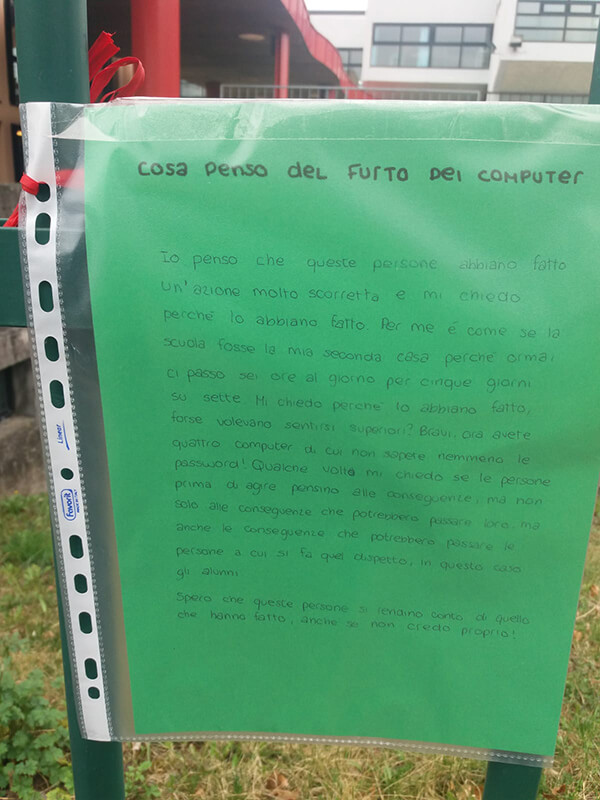 COSA PENSO DEL FURTO DEI COMPUTER
Io penso che queste persone abbiano fatto
un'azione molto scorretta e mi chiedo
perché lo abbiano fatto. Per me é come se la
scuola fosse la mia seconda casa perché ormai
ci passo sei ore al giorno per cinque giorni
su sette. Mi chiedo perché lo abbiano fatto,
forse volevano sentirsi superiori? Bravi, ora avete
quattro computer di cui non sapete nemmeno le
password! Qualche volta mi chiedo se le persone
prima di agire pensino alle conseguenze, ma non
solo alle conseguenze che potrebbero passare loro, ma
anche le conseguenze che potrebbero passare le
persone a cui si fa quel dispetto, in questo caso
gli alunni.
Spero che queste persone si rendino conto di quello
che hanno fatto, anche se non credo proprio!
Linear
favorit